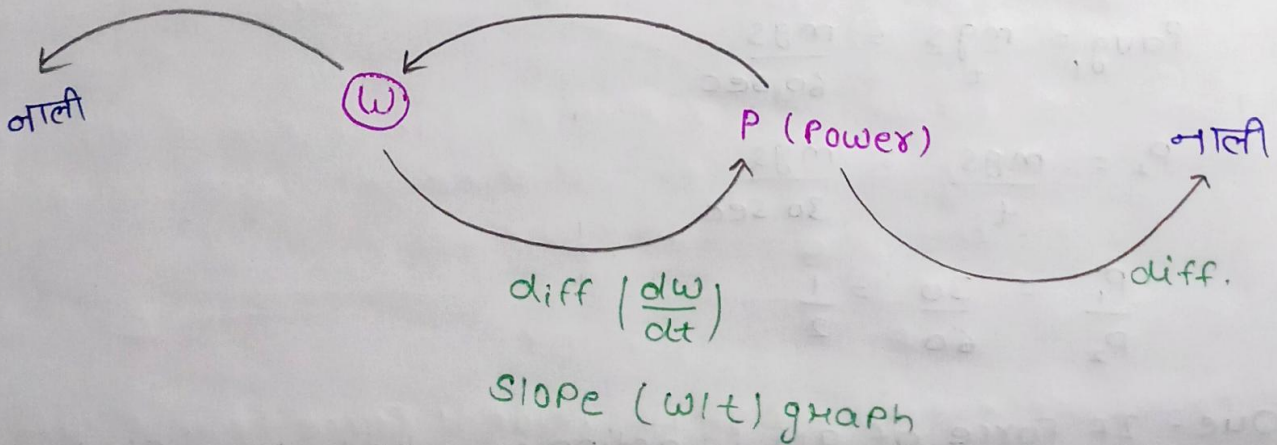 नाली
W
P (Power)
नाली
diff (dw/dt)
diff.
Slope (W/t) graph